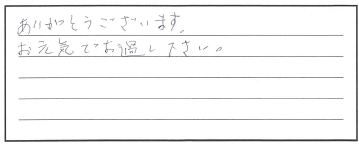 ありがとうございます。
お元気でお過し下さい。